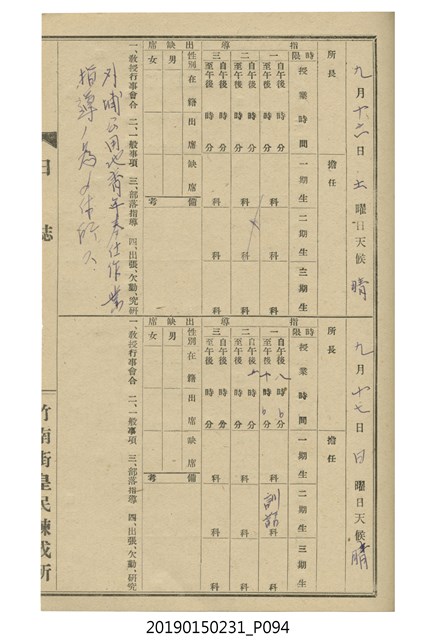 九月十六日 土曜日 天候 晴
所長 擔任
時限 授業時間 一期生 二期生 三期生
指導
一 自午後 時 分 至午後 時 分 科 科 科
二 自午後 時 分 至午後 時 分 科 科 科
三 自午後 時 分 至午後 時 分 科 科 科
出缺席
性別 在籍 出席 缺席 備考
男
女
一、敎授行事會合 二、一般事項 三、部落指導 四、出張、欠勤、究研
外埔 地靑年奉仕作業
指導ノ為
日誌
九月十七日 日曜日 天候 晴
所長 擔任
時限 授業時間 一期生 二期生 三期生
指導
一 自午後 八時 分 至午後 十時 分 科 科 訓話 科
二 自午後 時 分 至午後 時 分 科 科 科
三 自午後 時 分 至午後 時 分 科 科 科
出缺席
性別 在籍 出席 缺席 備考
男
女
一、敎授行事會合 二、一般事項 三、部落指導 四、出張、欠勤、研究
竹南街皇民鍊成所
20190150231_P094